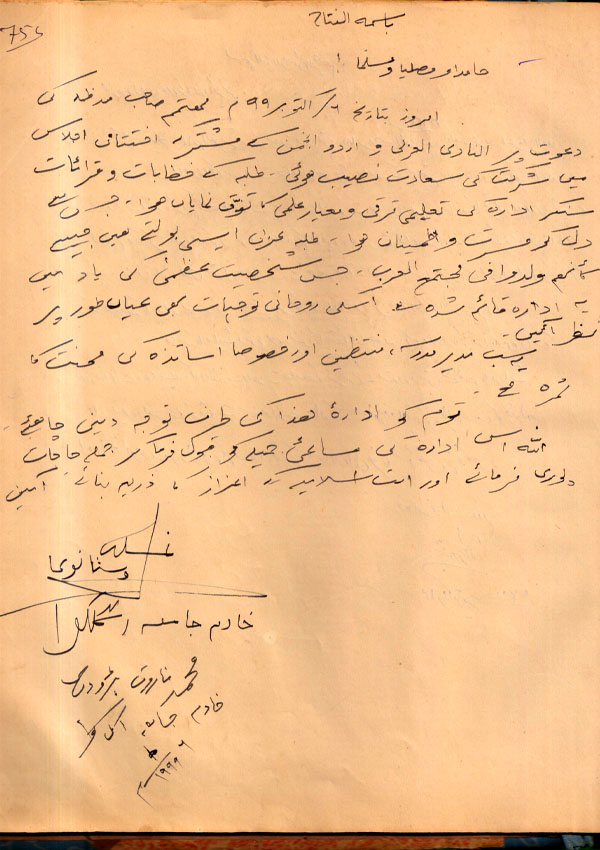 باسمہ الفتاح
حامدا و مصلیا و مسلما !
امروز بتاریخ ۶ / اکتوبر ۹۹ م مہتمم صاحب مدظلہ کی
دعوت پر النادی العربی و اردو انجمن کے مشترکہ افتتاحی اجلاس
میں شرکت کی سعادت نصیب ہوئی - طلبہ کے خطابات و قرائات
سنکر ادارہ کی تعلیمی ترقی و معیار علمی کا تفوق نمایاں ہوا - جس سے
دل کو مسرت و اطمینان ہوا - طلبہ عربی ایسی بولتے ہیں جیسے
کأنهم ولدوا فی مجتمع العرب - جس شخصیت عظمیٰ کی یاد میں
یہ ادارہ قائم شدہ ہے اسکی روحانی توجہات بھی عیاں طور پر
نظر آئیں -
یہ سب مدیر مدرسہ، منتظمین اور خصوصا اساتذہ کی محنت کا
ثمرہ ہے -
قوم کو ادارۂ ھذا کی طرف توجہ دینی چاھئے -
اللہ اس ادارہ کی مساعئ جمیلہ کو قبول فرما کر جملہ حاجات
پوری فرمائے اور امت اسلامیہ کے اعزاز کا ذریعہ بنائے آمین
وستانوی
خادم جامعہ اکل کوا
محمد فاروق بڑودوی
خادم جامعہ اکل کوا
۱۹۹۹